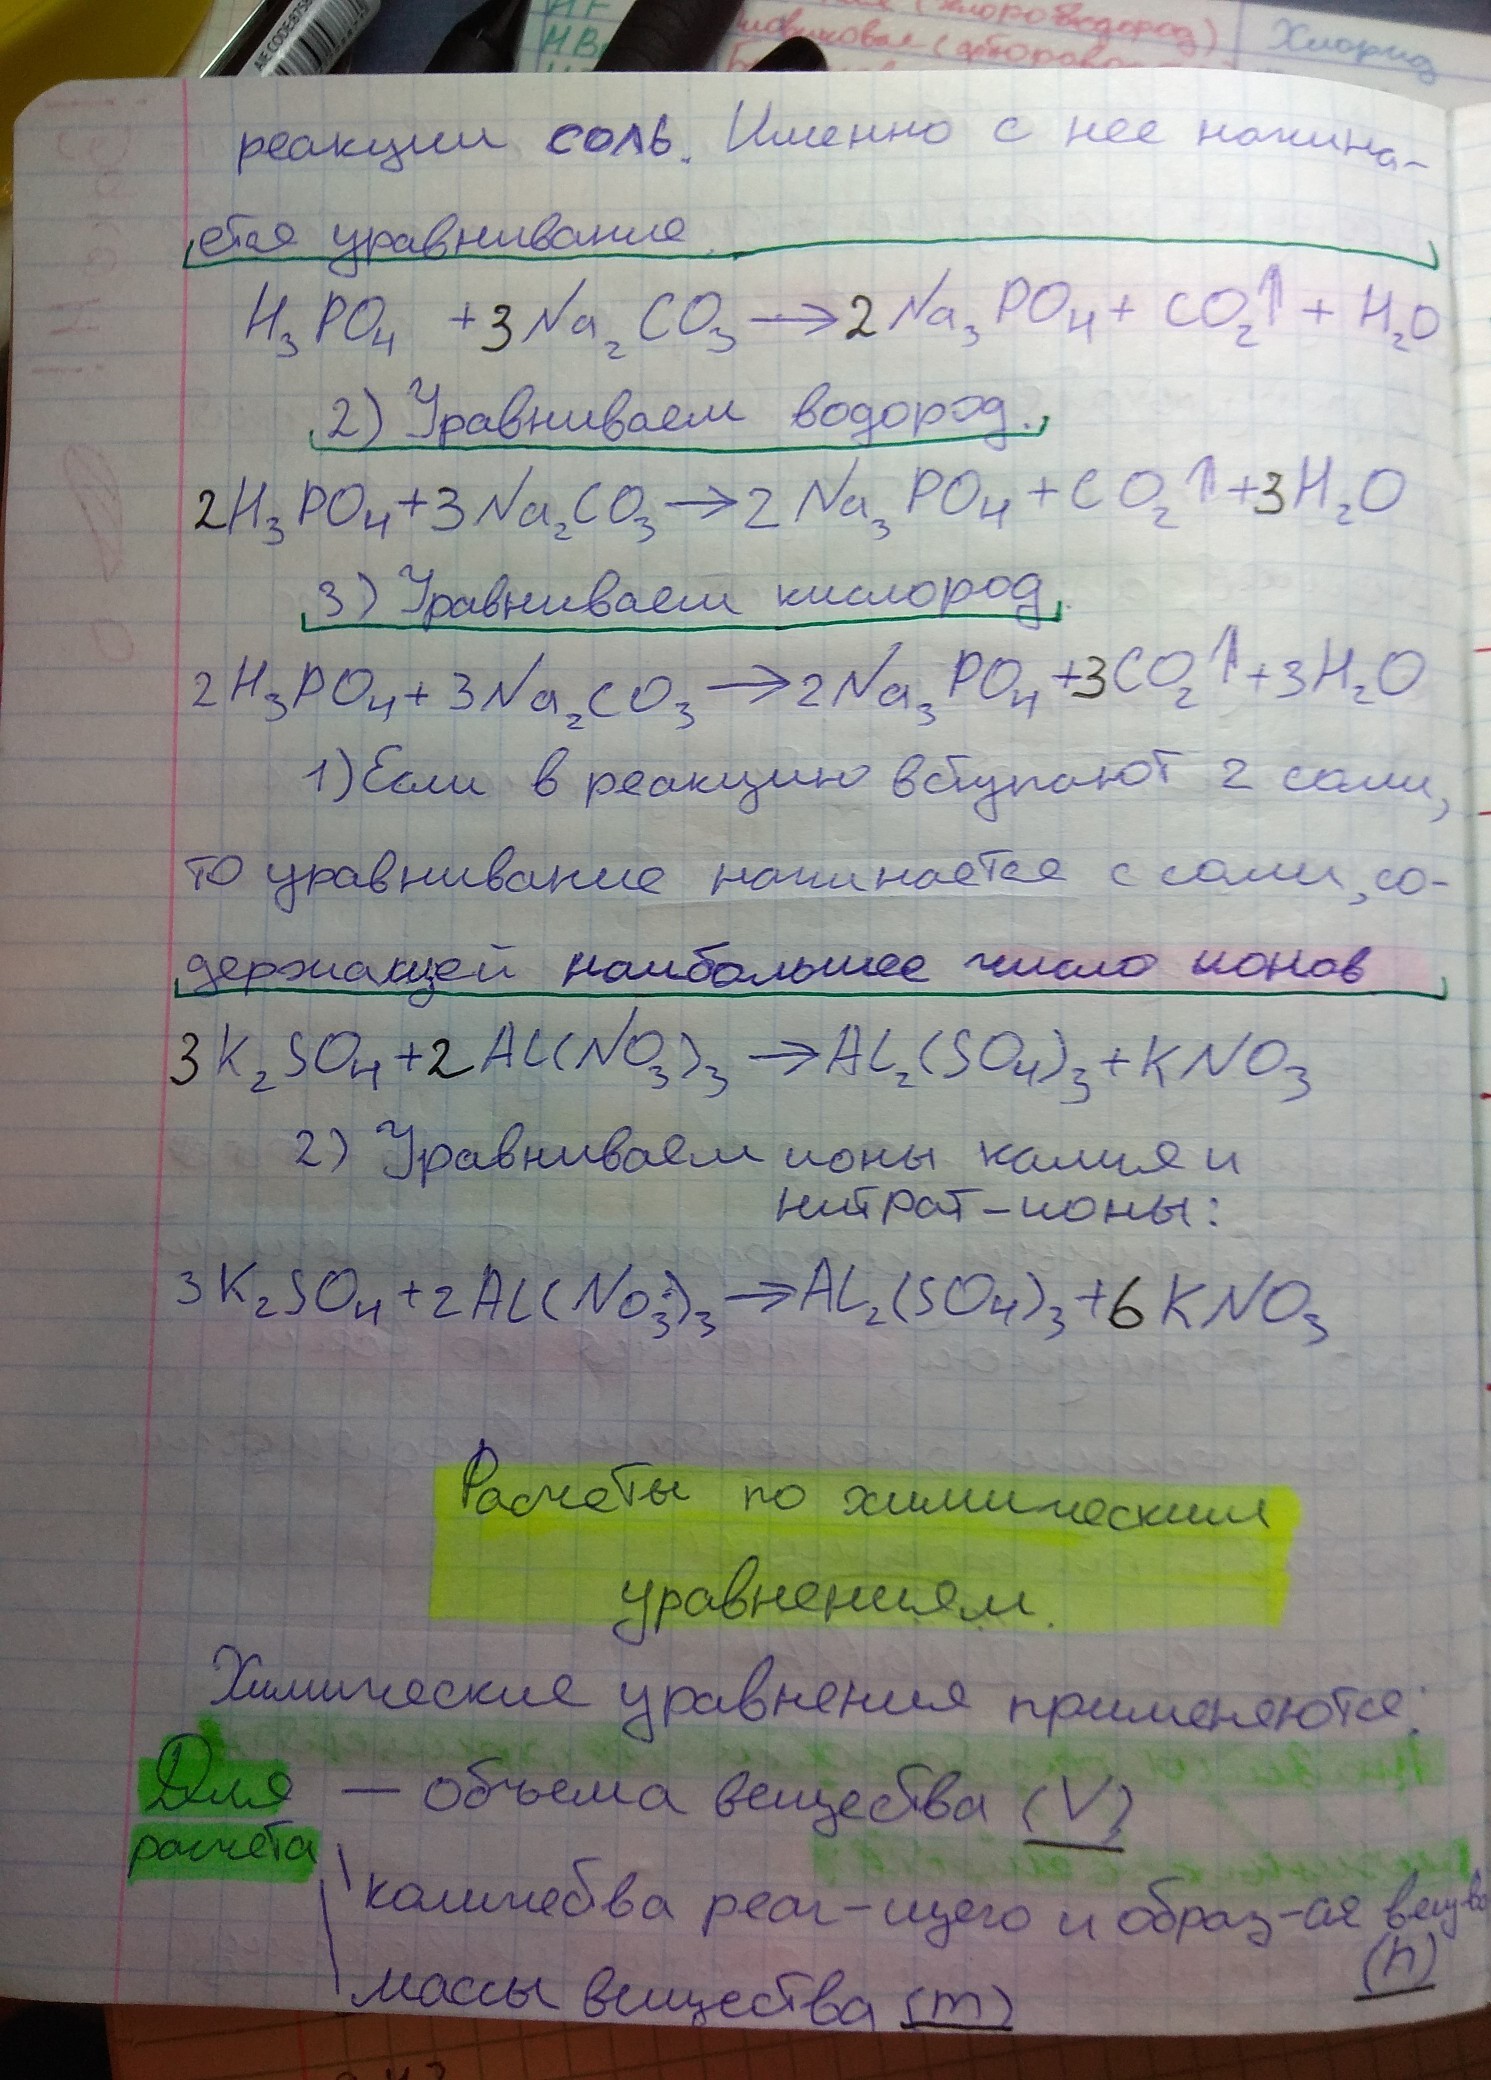 HF
HBr
(хлороводород)
Хлорид
AECODE8758
реакции соль. Именно с нее начина-
ется уравнивание.
H₃PO₄ + 3Na₂CO₃ → 2Na₃PO₄ + CO₂↑ + H₂O
2) Уравниваем водород.
2H₃PO₄ + 3Na₂CO₃ → 2Na₃PO₄ + CO₂↑ + 3H₂O
3) Уравниваем кислород.
2H₃PO₄ + 3Na₂CO₃ → 2Na₃PO₄ + 3CO₂↑ + 3H₂O
1) Если в реакцию вступают 2 соли,
то уравнивание начинается с соли, со-
держащей наибольшее число ионов
3K₂SO₄ + 2AL(NO₃)₃ → AL₂(SO₄)₃ + KNO₃
2) Уравниваем ионы калия и
нитрат-ионы:
3K₂SO₄ + 2AL(NO₃)₃ → AL₂(SO₄)₃ + 6KNO₃
Расчеты по химическим
уравнениям.
Химические уравнения применяются:
Для – объема вещества (V)
расчета
количества реаг-щего и образ-ся вещ-ва
(n)
массы вещества (m)